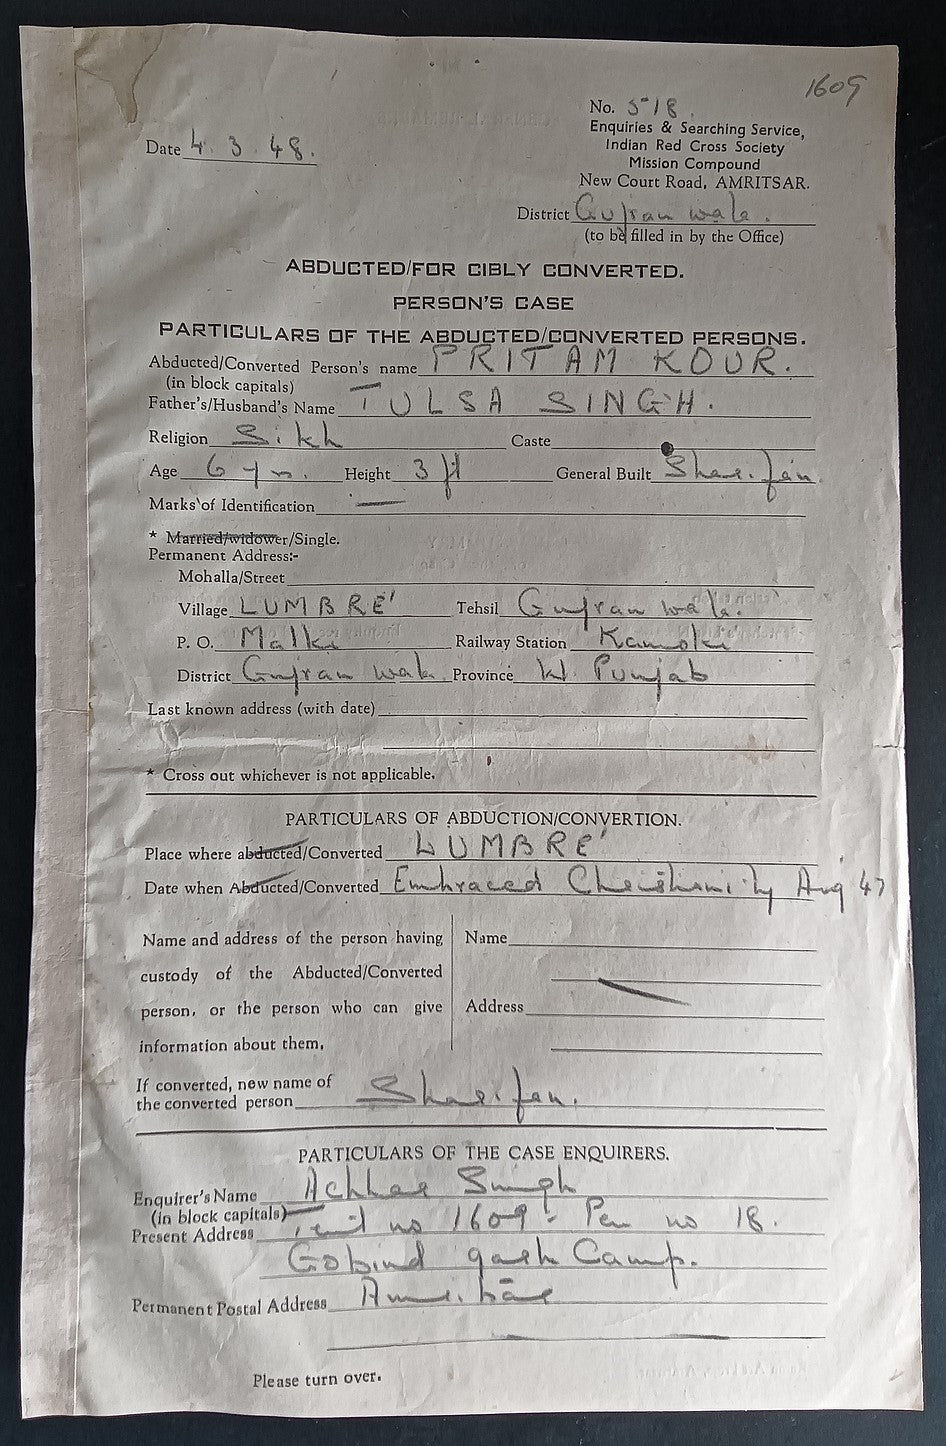 1609
No. 518.
Enquiries & Searching Service,
Indian Red Cross Society
Mission Compound
New Court Road, AMRITSAR.
Date 4.3.48.
District Gujran wala.
(to be filled in by the Office)
ABDUCTED/FOR CIBLY CONVERTED.
PERSON'S CASE
PARTICULARS OF THE ABDUCTED/CONVERTED PERSONS.
Abducted/Converted Person's name PRITAM KOUR.
(in block capitals)
Father's/Husband's Name TULSA SINGH.
Religion Sikh Caste
Age 6 yrs. Height 3 ft General Built Sharifan
Marks of Identification —
* Married/widower/Single.
Permanent Address:-
Mohalla/Street
Village LUMBRE' Tehsil Gujran wala.
P. O. Malki Railway Station Kamoki
District Gujran wala Province W. Punjab
Last known address (with date)
* Cross out whichever is not applicable.
PARTICULARS OF ABDUCTION/CONVERTION.
Place where abducted/Converted LUMBRE'
Date when Abducted/Converted Embraced Christianity Aug 47
Name and address of the person having Name
custody of the Abducted/Converted
person, or the person who can give Address
information about them.
If converted, new name of
the converted person Sharifan.
PARTICULARS OF THE CASE ENQUIRERS.
Enquirer's Name Achhar Singh
(in block capitals)
Present Address no 1609 Pen no 18.
Gobind garh Camp.
Permanent Postal Address Amritsar
Please turn over.